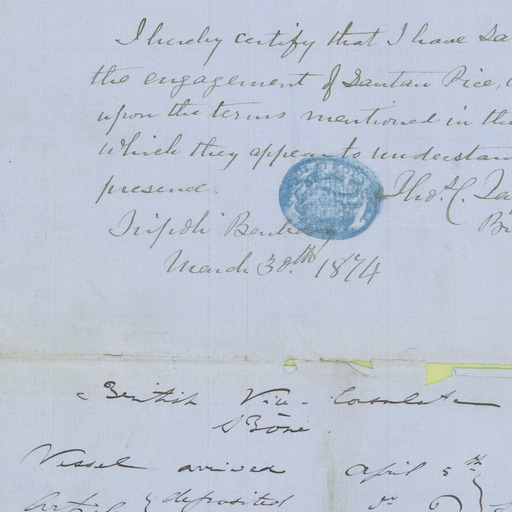 I hereby certify that I have sa
the engagement of Santan Pice,
upon the terms mentioned in the
which they appear to understan
presence.
Thos. C.
Tripoli Barba
March 30th 1874
British Vice-Consulate
Bône.
Vessel arrived April 5th
deposited do 6